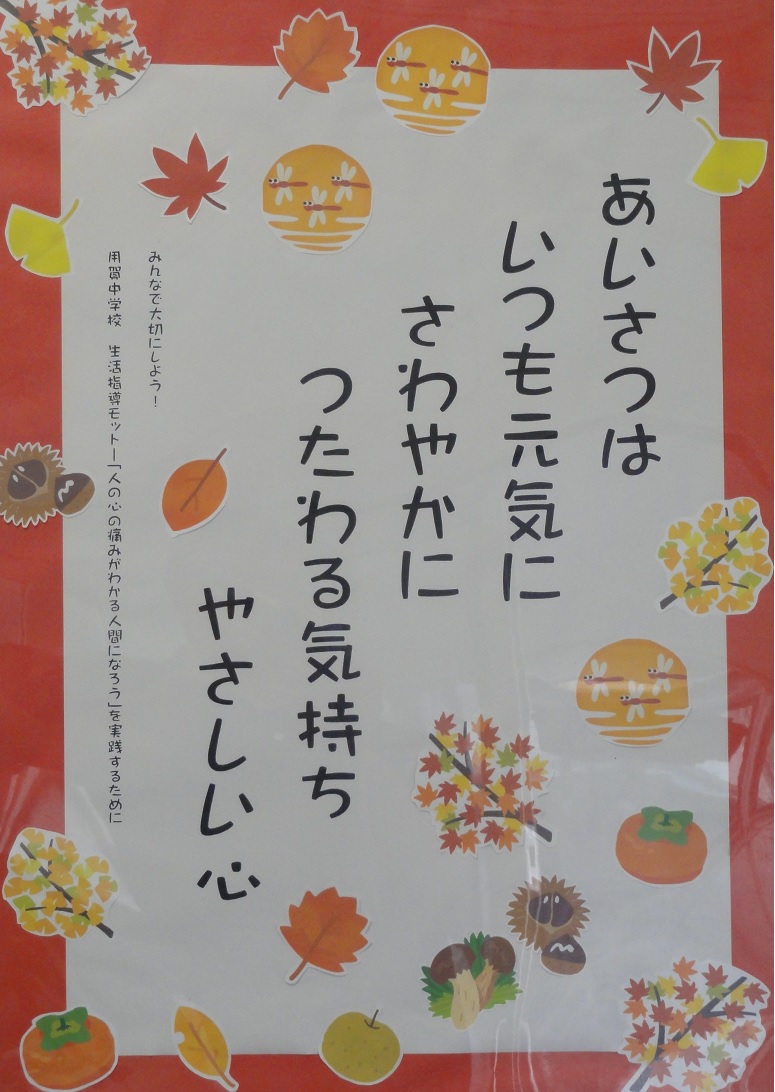 あいさつは
いつも元気に
さわやかに
つたわる気持ち
やさしい心
みんなで大切にしよう！
用賀中学校　生活指導モットー「人の心の痛みがわかる人間になろう」を実践するために